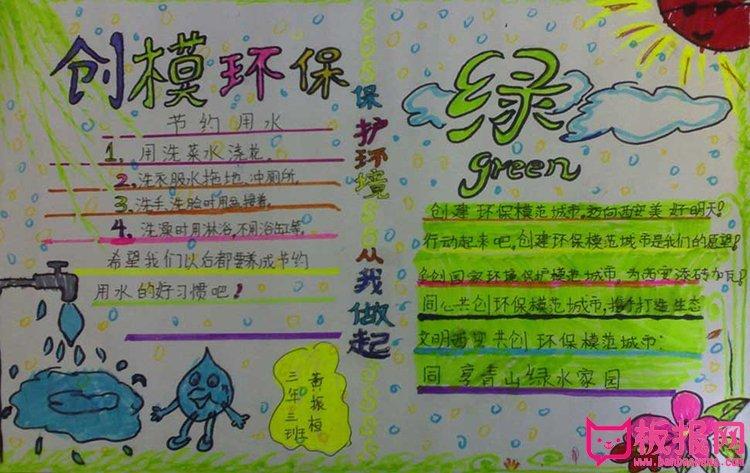 创模环保
节约用水
1.用洗菜水浇花。
2.洗衣服水拖地、冲厕所。
3.洗手、洗脸时用盆接着。
4.洗澡时用淋浴,不用浴缸等。
希望我们以后都要养成节约
用水的好习惯吧!
黄振桓
三年三班
保护环境
从我做起
绿
green
创建环保模范城市,迈向西安美好明天!
行动起来吧,创建环保模范城市是我们的愿望!
争创国家环境保护模范城市,为西安添砖加瓦!
同心共创环保模范城市,携手打造生态
文明西安共创环保模范城市:
同享青山绿水家园
板报网
www.banbaowang.com